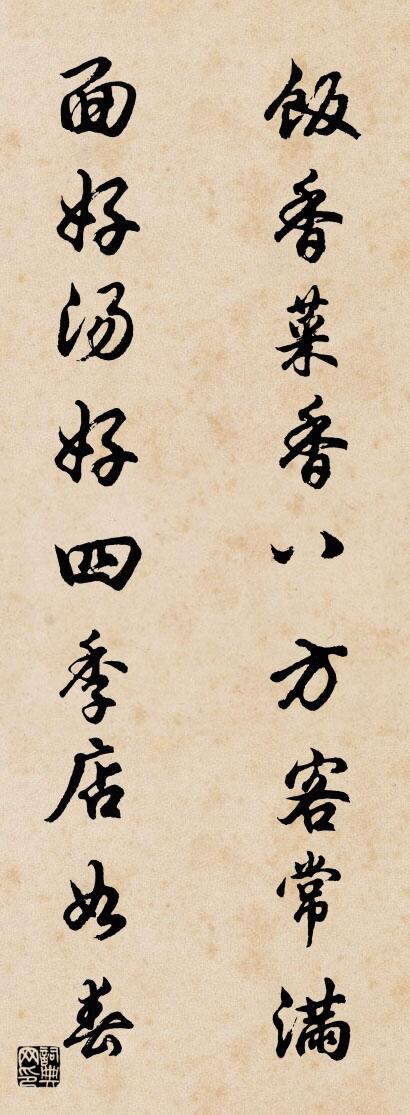 饭香菜香八方客常满
面好汤好四季店如春
词典网印